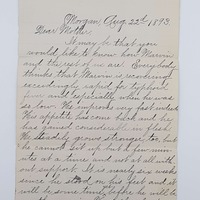 Morgan, Aug 22nd 1893.
Dear Mother:
It may be that you
would like to know how Marvin
and the rest of us are. Everybody
thinks that Marvin is recovering
exceedingly rapid for typhoid
fever, and especially when he was
so low. He improves very fast indeed.
His appetite has come back and he
has gained considerable in flesh
He steadily grows stronger, too, but
he cannot sit up but a few min-
utes at a time and not at all with
out support. It is nearly six weeks
since he stood on his feet and it
will be some time yet before he will be